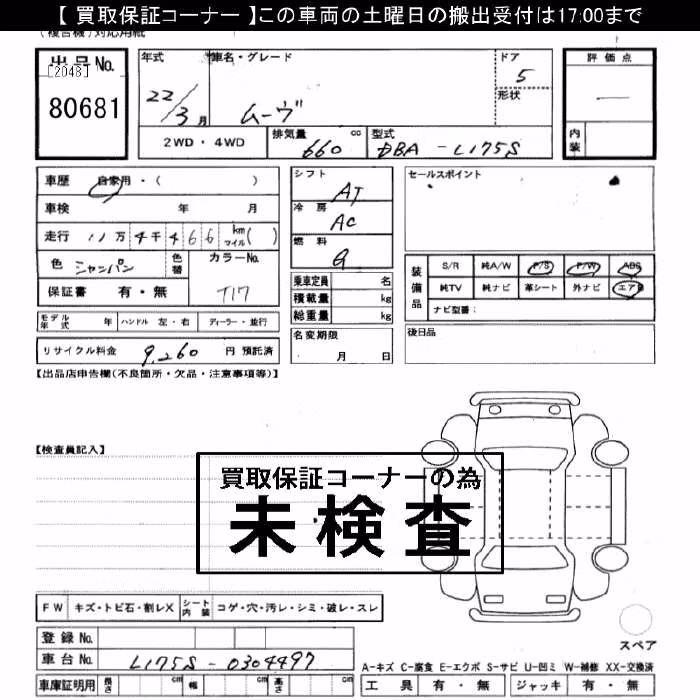 【 買取保証コーナー 】この車両の土曜日の搬出受付は17:00まで
(複合機)対応用紙
出品No.
[2048]
80681
年式
22/3月
車名・グレード
ムーヴ
ドア
5
形状
評価点
—
内装
2WD・4WD
排気量
660 cc
型式
DBA-L175S
車歴 自家用・( )
車検 年 月
走行 11万4千466 km マイル( )
色 シャンパン
色替
カラーNo.
T17
保証書 有・無
モデル年式 年 ハンドル 左・右 ディーラー・並行
リサイクル料金 9,260 円 預託済
シフト
AT
冷房
AC
燃料
G
乗車定員 名
積載量 kg
総重量 kg
名変期限
月 日
セールスポイント
装備品
S/R 純A/W P/S P/W ABS
純TV 純ナビ 革シート 外ナビ エアB
ナビ型番:
後日品
【出品店申告欄(不良箇所・欠品・注意事項等)】
【検査員記入】
買取保証コーナーの為
未検査
FW キズ・トビ石・割レX シート内装 コゲ・穴・汚レ・シミ・破レ・スレ
登録No.
車台No. L175S-0304497
車庫証明用 長さ cm 幅 cm 高さ cm
スペア
A-キズ C-腐食 E-エクボ S-サビ U-凹ミ W-補修 XX-交換済
工具 有・無 ジャッキ 有・無